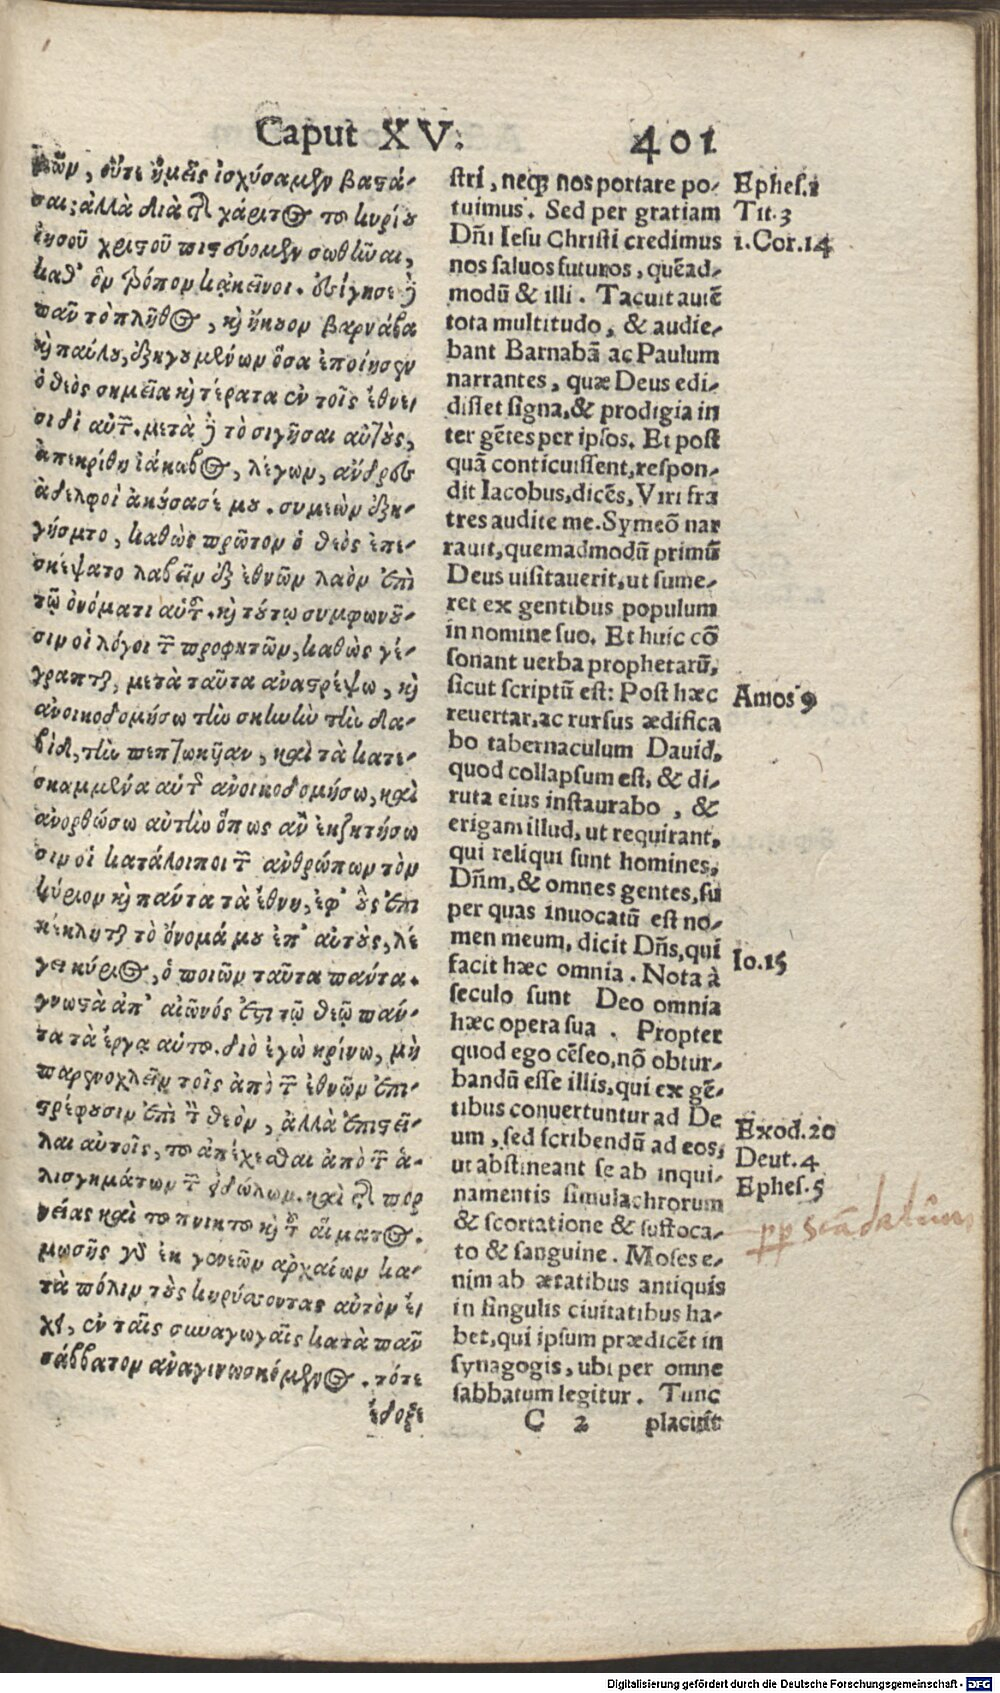 Caput XV. 401
μῶν, οὔτε ἡμεῖς ἰσχύσαμεν βαστά-
σαι; ἀλλὰ διὰ τῆς χάριτος τοῦ κυρίου
ἰησοῦ χριστοῦ πιστεύομεν σωθῆναι,
καθ' ὃν τρόπον κἀκεῖνοι. ἐσίγησε δὲ
πᾶν τὸ πλῆθος, καὶ ἤκουον βαρνάβα
καὶ παύλου, ἐξηγουμένων ὅσα ἐποίησεν
ὁ θεὸς σημεῖα καὶ τέρατα ἐν τοῖς ἔθνε-
σι δι αὐτῶν. μετὰ δὲ τὸ σιγῆσαι αὐτοὺς,
ἀπεκρίθη ἰάκωβος, λέγων, ἄνδρες
ἀδελφοὶ ἀκούσατέ μου. συμεὼν ἐξη-
γήσατο, καθὼς πρῶτον ὁ θεὸς ἐπε-
σκέψατο λαβεῖν ἐξ ἐθνῶν λαὸν ἐπὶ
τῷ ὀνόματι αὐτοῦ. καὶ τούτῳ συμφωνοῦ-
σιν οἱ λόγοι τῶν προφητῶν, καθὼς γέ-
γραπται, μετὰ ταῦτα ἀναστρέψω, καὶ
ἀνοικοδομήσω τὴν σκηνὴν τὴν δα-
βὶδ, τὴν πεπτωκυῖαν, καὶ τὰ κατε-
σκαμμένα αὐτῆς ἀνοικοδομήσω, καὶ
ἀνορθώσω αὐτὴν ὅπως ἂν ἐκζητήσω
σιν οἱ κατάλοιποι τῶν ἀνθρώπων τὸν
κύριον καὶ πάντα τὰ ἔθνη, ἐφ' οὓς ἐπι
κέκληται τὸ ὄνομά μου ἐπ' αὐτοὺς, λέ
γει κύριος, ὁ ποιῶν ταῦτα πάντα.
γνωστὰ ἀπ' αἰῶνός ἐστι τῷ θεῷ πάν-
τα τὰ ἔργα αὐτοῦ. διὸ ἐγὼ κρίνω, μὴ
παρενοχλεῖν τοῖς ἀπὸ τῶν ἐθνῶν ἐπι-
στρέφουσιν ἐπὶ τὸν θεὸν, ἀλλὰ ἐπιστεῖ-
λαι αὐτοῖς, τοῦ ἀπέχεσθαι ἀπὸ τῶν ἀ-
λισγημάτων τῶν εἰδώλων, καὶ τῆς πορ
νείας καὶ τοῦ πνικτοῦ καὶ τοῦ αἵματος.
μωσῆς γὰρ ἐκ γενεῶν ἀρχαίων κα-
τὰ πόλιν τοὺς κηρύσσοντας αὐτὸν ἔ-
χει, ἐν ταῖς συναγωγαῖς κατὰ πᾶν
σάββατον ἀναγινωσκόμενος. τότε
ἔδοξε
stri, neq; nos portare po-
tuimus. Sed per gratiam
Dñi Iesu Christi credimus
nos saluos futuros, quẽad-
modũ & illi. Tacuit autẽ
tota multitudo, & audie-
bant Barnabã ac Paulum
narrantes, quæ Deus edi-
disset signa, & prodigia in
ter gẽtes per ipsos. Et post
quã conticuissent, respon-
dit Iacobus, dicẽs, Viri fra
tres audite me. Symeõ nar
rauit, quemadmodũ primũ
Deus uisitauerit, ut sume-
ret ex gentibus populum
in nomine suo. Et huic cõ
sonant uerba prophetarũ,
sicut scriptũ est: Post hæc
reuertar, ac rursus ædifica
bo tabernaculum Dauid,
quod collapsum est, & di-
ruta eius instaurabo, &
erigam illud, ut requirant,
qui reliqui sunt homines,
Dñm, & omnes gentes, su
per quas inuocatũ est no-
men meum, dicit Dñs, qui
facit hæc omnia. Nota à
seculo sunt Deo omnia
hæc opera sua. Propter
quod ego cẽseo, nõ obtur-
bandũ esse illis, qui ex gẽ-
tibus conuertuntur ad De
um, sed scribendũ ad eos,
ut abstineant se ab inqui-
namentis simulachrorum
& scortatione & suffoca-
to & sanguine. Moses e-
nim ab ætatibus antiquis
in singulis ciuitatibus ha-
bet, qui ipsum prædicẽt in
synagogis, ubi per omne
sabbatum legitur. Tunc
C 2 placuit
Ephes.2
Tit.3
1.Cor.14
Amos 9
Io.15
Exod.20
Deut.4
Ephes.5
pp scãdalum
Digitalisierung gefördert durch die Deutsche Forschungsgemeinschaft - DFG